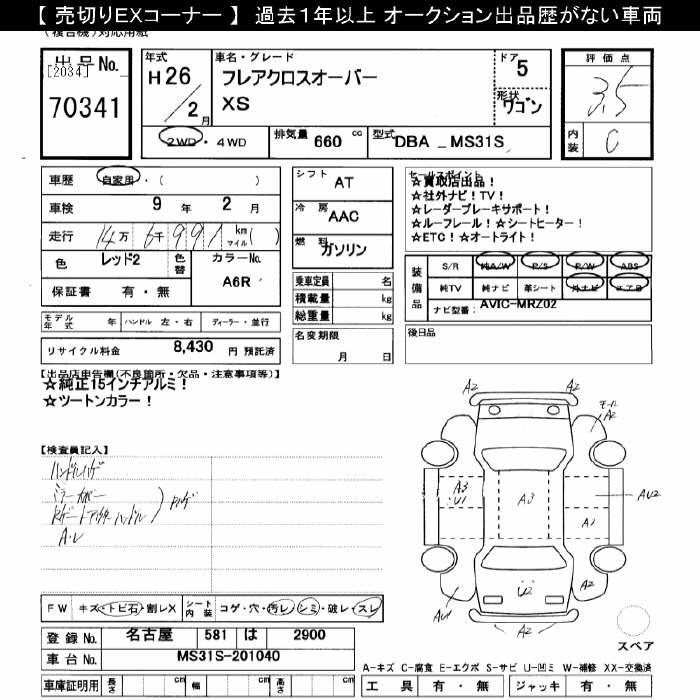 【 売切りEXコーナー 】 過去1年以上 オークション出品歴がない車両
(複合機)対応用紙
出品No.
[2034]
70341
年式
H26
2月
車名・グレード
フレアクロスオーバー
XS
ドア
5
形状
ワゴン
評価点
3.5
内装
C
2WD・4WD
排気量 660 cc
型式 DBA _ MS31S
車歴 自家用・( )
車検 9 年 2 月
走行 14万6千991 km マイル ( )
色 レッド2
色替
カラーNo.
A6R
保証書 有・無
シフト AT
冷房 AAC
燃料 ガソリン
乗車定員 名
積載量 kg
総重量 kg
セールスポイント
☆買取店出品!
☆社外ナビ!TV!
☆レーダーブレーキサポート!
☆ルーフレール!☆シートヒーター!
☆ETC!☆オートライト!
装備品
S/R 純A/W P/S P/W ABS
純TV 純ナビ 革シート 外ナビ エアB
ナビ型番: AVIC-MRZ02
モデル年式 年
ハンドル 左・右
ディーラー・並行
名変期限
月 日
後日品
リサイクル料金 8,430 円 預託済
【出品店申告欄(不良箇所・欠品・注意事項等)】
☆純正15インチアルミ!
☆ツートンカラー!
【検査員記入】
ハンドルハゲ
ミラーカバー
Rゲートアウターハンドル
A・U
A2
A2
モール
A2
A3
U1
A3
AU2
A1
AU1
U2
A2
A2
FW キズ・トビ石・割レX
シート内装 コゲ・穴・汚レ・シミ・破レ・スレ
登録No. 名古屋 581 は 2900
車台No. MS31S-201040
スペア
A-キズ C-腐食 E-エクボ S-サビ U-凹ミ W-補修 XX-交換済
車庫証明用 長さ cm 幅 cm 高さ cm
工具 有・無
ジャッキ 有・無